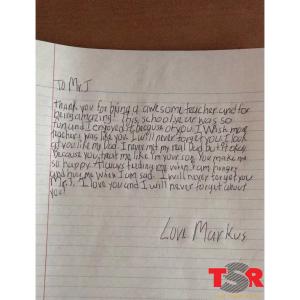 To Mr.J
Thank you for being a awesome teacher and for
being amazing! This school year was so
fun and I enjoyed it because of you. I wish more
teachers was like you. I will never forget you. I look
at you like my Dad. I never met my real Dad but it okay
because you treat me like I'm your son. You make me
so happy. Always feeding me when I am hungry
and hug me when I am sad. I will never forget you
Mr.J. I love you and I will never forget about
you!
Love Markus
TSR